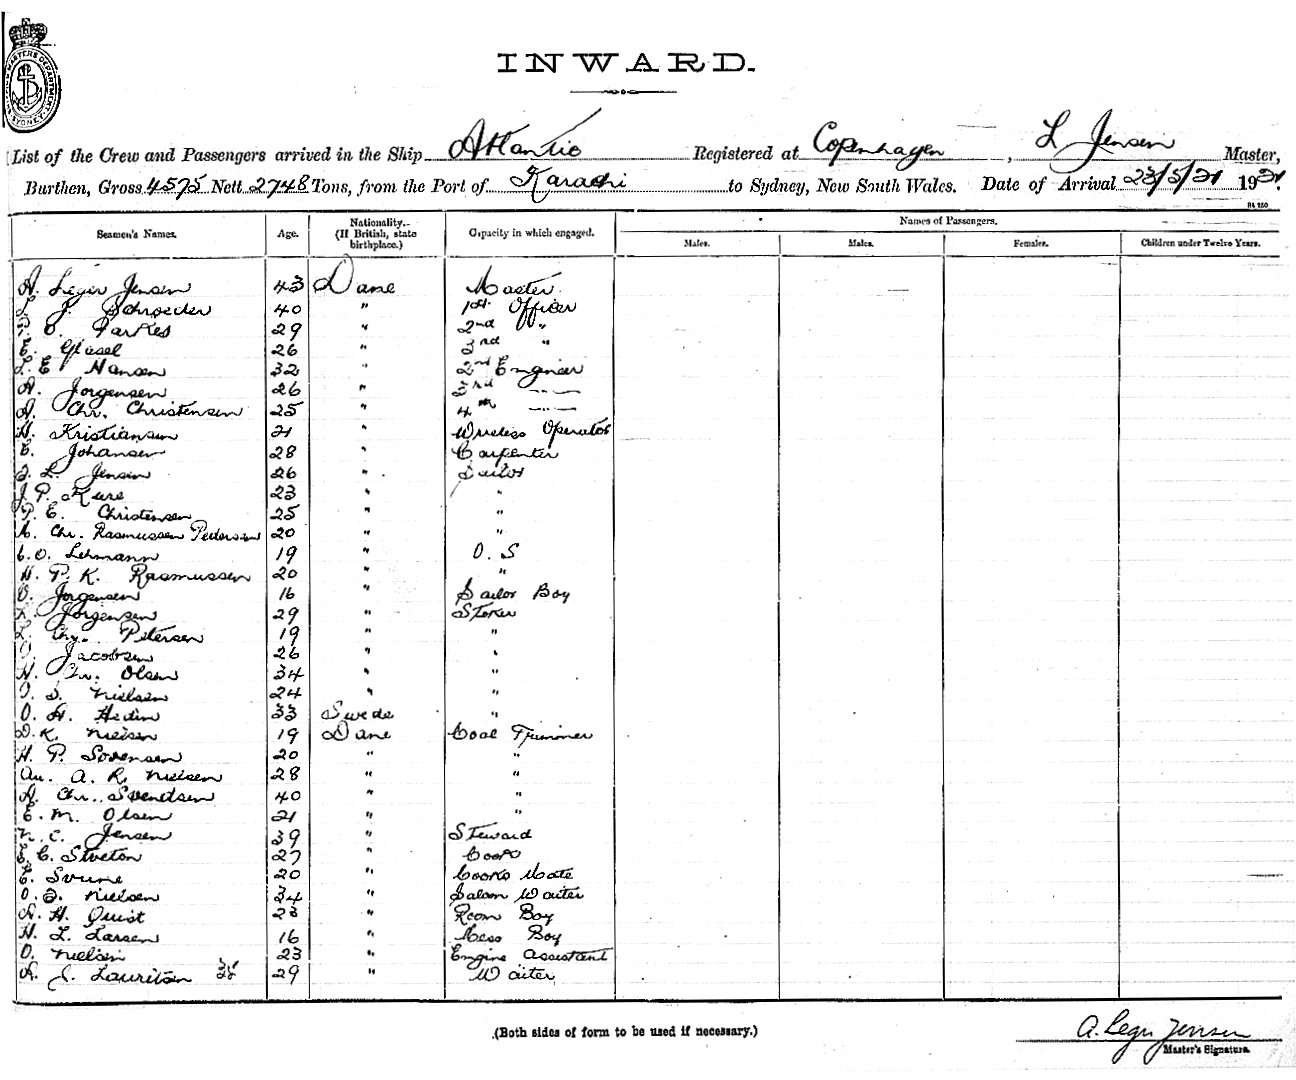 INWARD.
List of the Crew and Passengers arrived in the Ship Atlantic Registered at Copenhagen, L Jensen Master,
Burthen, Gross 4575 Nett 2748 Tons, from the Port of Karachi to Sydney, New South Wales. Date of Arrival 23/5/21 1921.
Seamen's Names. Age. Nationality.- (If British, state birthplace.) Capacity in which engaged. Names of Passengers.
Males. Males. Females. Children under Twelve Years.
A. Legir Jensen 43 Dane Master
L. J. Schroeder 40 " 1st Officer
P. O. Parkes 29 " 2nd "
E. Glasel 26 " 3rd "
L. E Hansen 32 " 2nd Engineer
A. Jorgensen 26 " 3rd —
A. Chr. Christensen 25 " 4th —
H. Kristiansen 21 " Wireless Operator
E. Johansen 28 " Carpenter
L. Jensen 26 " Sailor
J. P. Kure 23 " "
P. E. Christensen 25 " "
A. Chr. Rasmussen Pedersen 20 " "
C. O. Lehmann 19 " O. S
H. P. K. Rasmussen 20 " "
O. Jorgensen 16 " Sailor Boy
L. Jorgensen 29 " Stoker
L. Chr. Petersen 19 " "
Jacobsen 26 " "
H. Chr. Olsen 34 " "
O. S. Nielsen 24 " "
O. H. Hedin 33 Swede "
D. K. Nielsen 19 Dane Coal Trimmer
H. P. Sorensen 20 " "
Au. A. R. Nielsen 28 " "
A. Chr. Svendsen 40 " "
E. M. Olsen 21 " "
N. C. Jensen 39 " Steward
E. C. Stveton 27 " Cook
E. 20 " Cooks Mate
O. Nielsen 34 " Saloon Waiter
A. H. Quist 23 " Room Boy
H. L. Larsen 16 " Mess Boy
O. Nielsen 23 " Engine Assistant
A. J. Lauritsen 29 " Waiter
(Both sides of form to be used if necessary.)
A. Legir Jensen
Master's Signature.